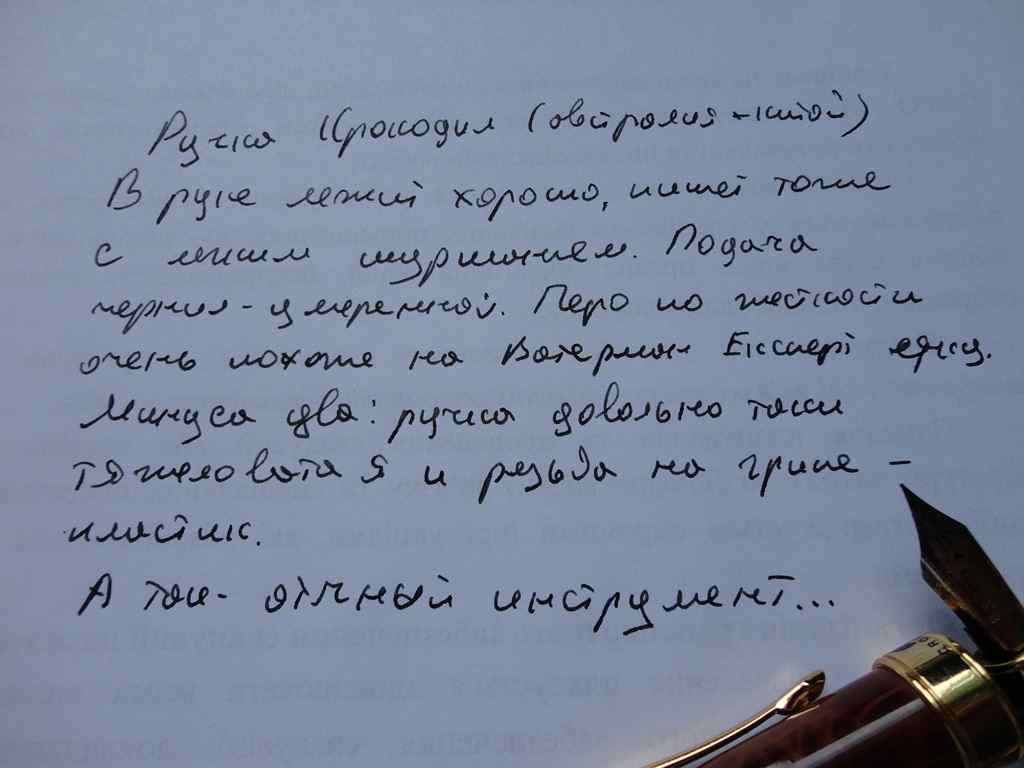 Ручка Крокодил (австралия - китай)
В руке лежит хорошо, пишет тоже
с легким шуршанием. Подача
чернил - умеренной. Перо по жесткости
очень похоже на Ватерман Експерт
Минуса два: ручка довольно таки
тяжеловатая и резьба на грипе -
пластик.
А так - отличный инструмент...
CRO